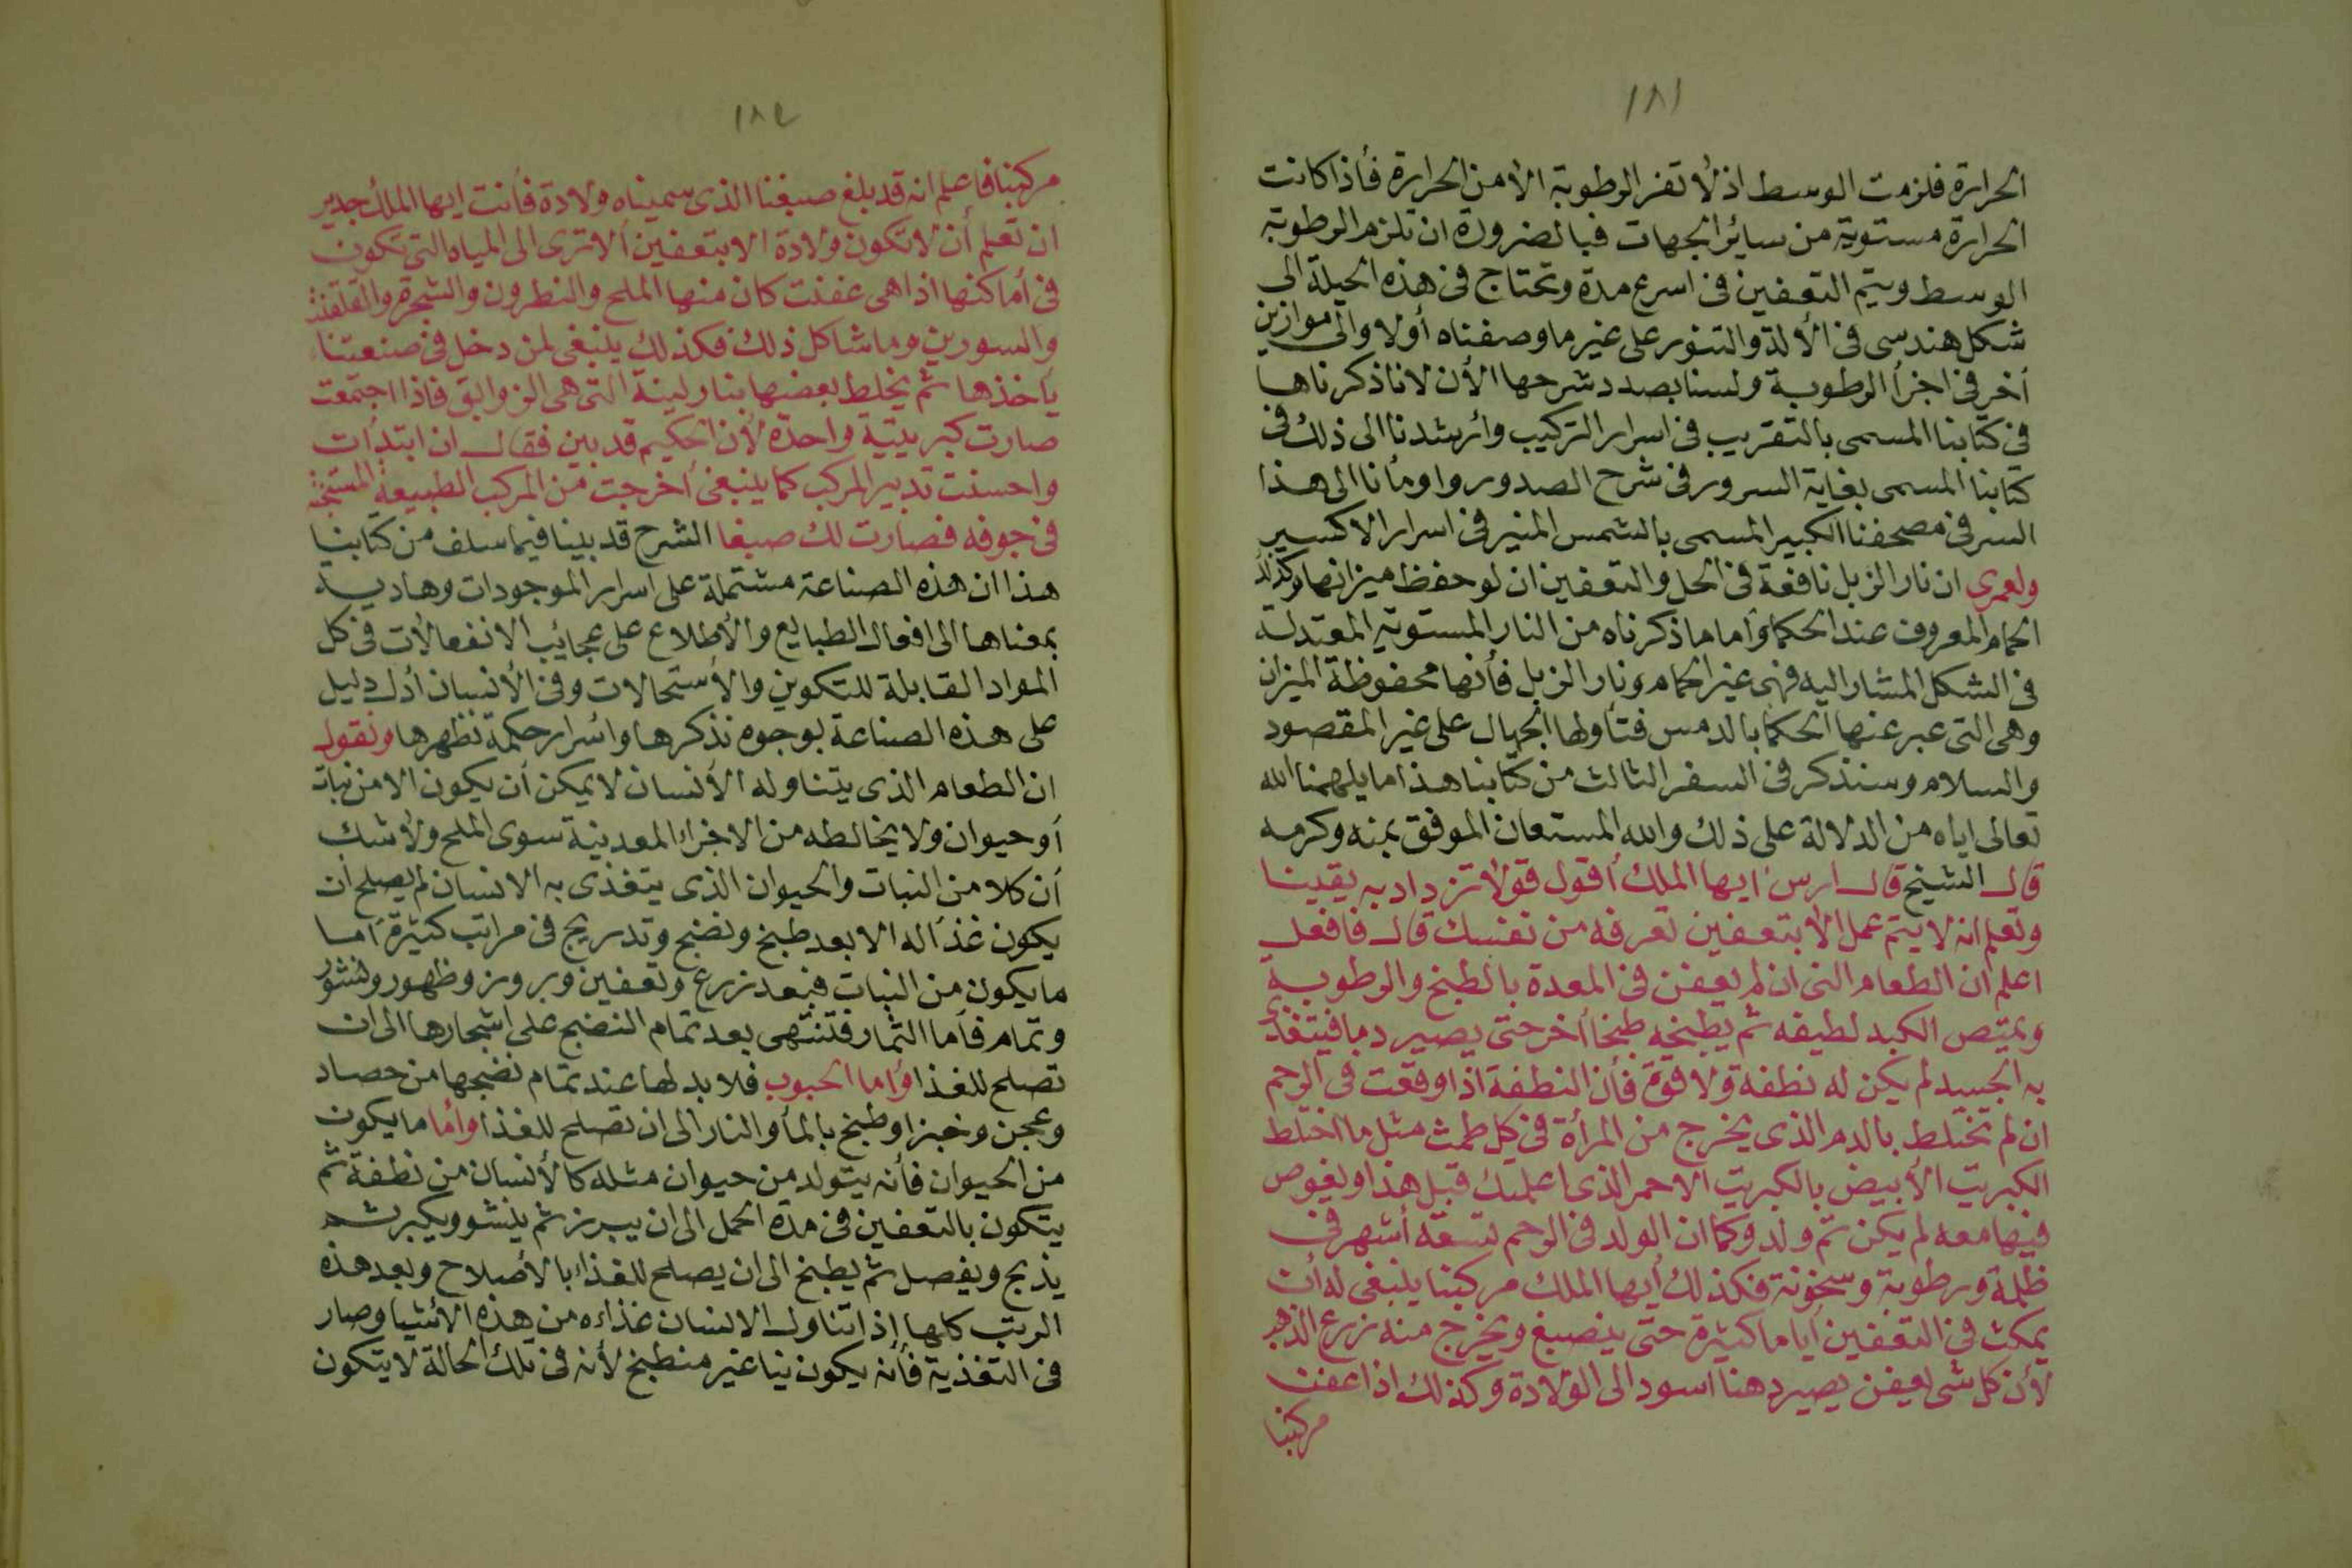 ١٨١
الحرارة فلزمت الوسط اذ لا تفر الرطوبة الا من الحرارة فأذا كانت
الحرارة مستوية من سائر الجهات فبالضرورة ان تلزم الرطوبة
الوسط ويتم التعفين فى اسرع مدة وتحتاج فى هذه الحيلة الى
شكل هندسى فى الألة والتنور على غير ما وصفناه أولا والى موازين
أخر فى اجزأ الرطوبة ولسنا بصدد شرحها الأن لانا ذكرناها
فى كتابنا المسمى بالتقريب فى اسرار التركيب وأرشدنا الى ذلك فى
كتابنا المسمى بغاية السرور فى شرح الصدور واومأنا الى هذا
السر فى مصحفنا الكبير المسمى بالشمس المنير فى اسرار الاكسير
ولعمرى ان نار الزبل نافعة فى الحل والتعفين ان لو حفظ ميزانها وكذلك
الحمام المعروف عند الحكما وأما ما ذكرناه من النار المستوية المعتدلة
فى الشكل المشار اليه فهى غير الحمام ونار الزبل فأنها محفوظة الميزان
وهى التى عبر عنها الحكما بالدمس فتأولها الجهال على غير المقصود
والسلام وسنذكر فى السفر الثالث من كتابنا هذا ما يلهمنا الله
تعالى اياه من الدلالة على ذلك والله المستعان الموفق بمنه وكرمه
قال الشيخ قال ارس ايها الملك أقول قولا تزداد به يقينا
وتعلم انه لا يتم عمل الا بتعفين تعرفه من نفسك قال فافعل
اعلم ان الطعام النى ان لم يعفن فى المعدة بالطبخ والرطوبة
ويمتص الكبد لطيفه ثم يطبخه طبخا أخر حتى يصير دما فيتغذى
به الجسد لم يكن له نطفة ولا قوة فأن النطفة اذا وقعت فى الرحم
ان لم تختلط بالدم الذى يخرج من المرأة فى كل طمث مثل ما اختلط
الكبريت الأبيض بالكبريت الاحمر الذى اعلمتك قبل هذا ويغوص
فيها معه لم يكن ثم ولد وكما ان الولد فى الرحم تسعة أشهر فى
ظلمة ورطوبة وسخونة فكذلك أيها الملك مركبنا ينبغى له أن
يمكث فى التعفين أياما كثيرة حتى ينصبغ ويخرج منه زرع الذهب
لأن كل شى يعفن يصير دهنا اسود الى الولادة وكذلك اذا عفنت
مركبنا
١٨٢
مركبنا فاعلم انه قد بلغ صبغنا الذى سميناه ولادة فأنت ايها الملك جدير
ان تعلم أن لا تكون ولادة الا بتعفين ألا ترى الى المياه التى تكون
فى أماكنها اذا هى عفنت كان منها الملح والنطرون والشجرة والقلقند
والسورين وما شاكل ذلك فكذلك ينبغى لمن دخل فى صنعتنا
يأخذها ثم يخلط بعضها بنار لينة التى هى الزوابق فاذا اجتمعت
صارت كبريتية واحدة لأن الحكيم قد بين فقال ان ابتدأت
واحسنت تدبير المركب كما ينبغى أخرجت من المركب الطبيعة المستجنة
فى جوفه فصارت لك صبغا الشرح قد بينا فيما سلف من كتابنا
هذا ان هذه الصناعة مشتملة على اسرار الموجودات وهادية
بمعناها الى افعال الطبايع والأطلاع على عجائب الانفعالات فى كل
المواد القابلة للتكوين والأستحالات وفى الأنسان أدل دليل
على هذه الصناعة بوجوه نذكرها واسرار حكمة نظهرها ونقول
ان الطعام الذى يتناوله الأنسان لا يمكن أن يكون الا من نبات
أو حيوان ولا يخالطه من الاجزاء المعدنية سوى الملح ولا شك
أن كلا من النبات والحيوان الذى يتغذى به الانسان لم يصلح ان
يكون غذأ له الا بعد طبخ ونضج وتدريج فى مراتب كثيرة أما
ما يكون من النبات فبعد زرع وتعفين وبروز وظهور ونشو
وتمام فأما الثمار فتنتهى بعد تمام النضج على اشجارها الى ان
تصلح للغذا وأما الحبوب فلا بد لها عند تمام نضجها من حصاد
وعجن وخبز او طبخ بالمأ والنار الى ان تصلح للغذا وأما ما يكون
من الحيوان فأنه يتولد من حيوان مثله كالأنسان من نطفة ثم
يتكون بالتعفين فى مدة الحمل الى ان يبرز ثم ينشو ويكبر ثم
يذبح ويفصل ثم يطبخ الى ان يصلح للغذاء بالأصلاح وبعد هذه
الرتب كلها إذا تناول الانسان غذاءه من هذه الأشيا وصار
فى التغذية فأنه يكون نيا غير منطبخ لأنه فى تلك الحالة لا يتكون